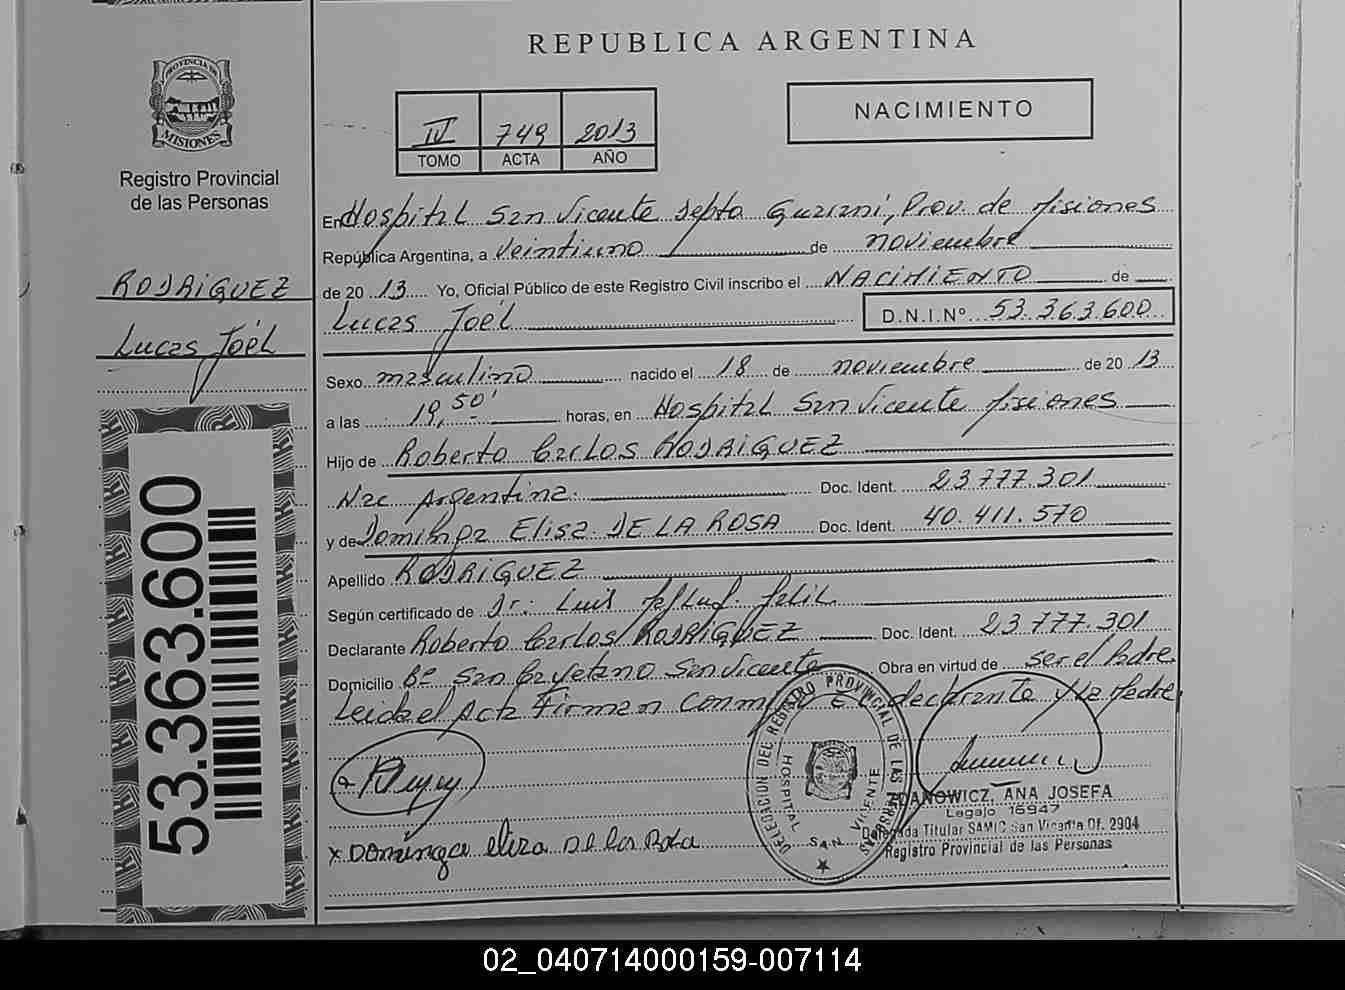 REPUBLICA ARGENTINA
PROVINCIA DE
MISIONES
Registro Provincial
de las Personas
IV 749 2013
TOMO ACTA AÑO
NACIMIENTO
RODRIGUEZ
Lucas Joél
53.363.600
En Hospital San Vicente Depto Guarani, Prov. de Misiones
República Argentina, a veintiuno de noviembre
de 20 13 Yo, Oficial Público de este Registro Civil inscribo el NACIMIENTO de
Lucas Joél D.N.I.Nº 53.363.600
Sexo masculino nacido el 18 de noviembre de 20 13
a las 19,50' horas, en Hospital San Vicente Misiones
Hijo de Roberto Carlos RODRIGUEZ
Nac Argentina. Doc. Ident. 23.777.301
y de Dominga Elisa DE LA ROSA Doc. Ident. 40.411.570
Apellido RODRIGUEZ
Según certificado de Dr. Luis
Declarante Roberto Carlos RODRIGUEZ Doc. Ident. 23.777.301
Domicilio Bº San Cayetano San Vicente Obra en virtud de ser el Padre
Leida el Acta Firman Conmigo El declarante y La Madre
x Dominga eliza De la Rosa
DELEGACION DEL REGISTRO PROVINCIAL DE LAS PERSONAS
HOSPITAL SAN VICENTE
ANA JOSEFA
Legajo 15947
Delegada Titular SAMIC San Vicente Of. 2904
Registro Provincial de las Personas
02_040714000159-007114